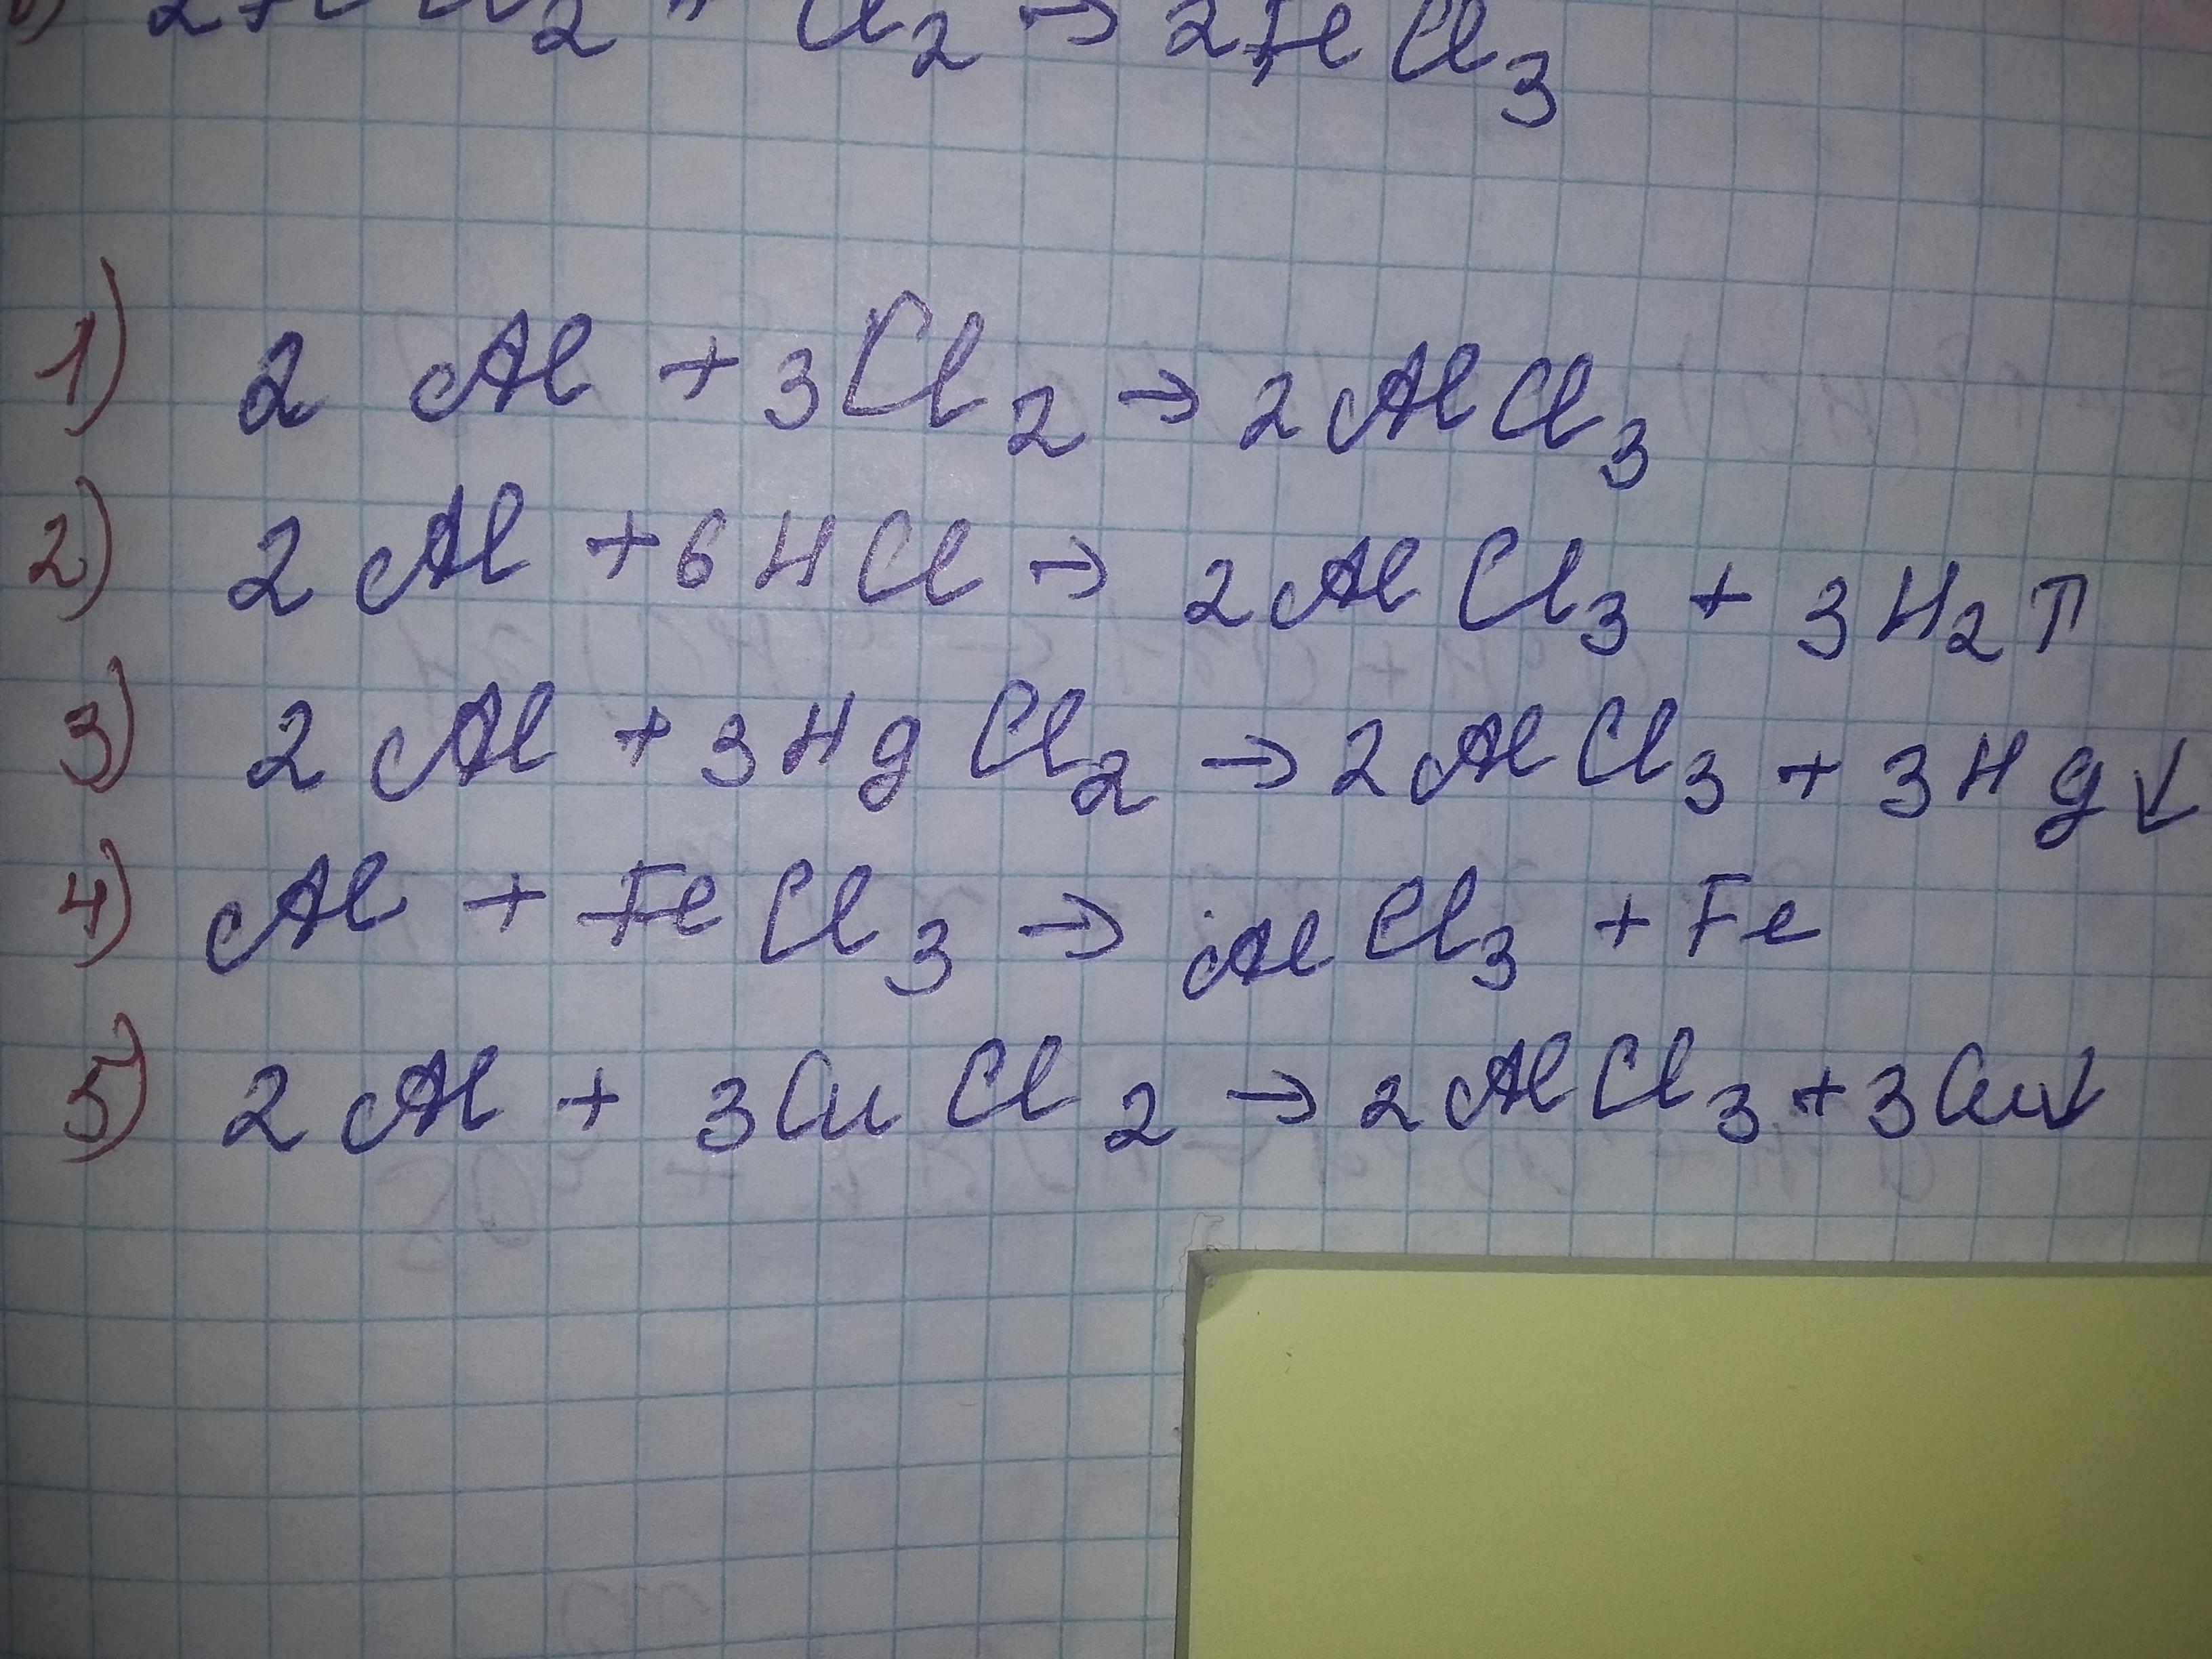 2FeCl₂ + Cl₂ → 2FeCl₃
1) 2 Al + 3Cl₂ → 2AlCl₃
2) 2 Al + 6HCl → 2AlCl₃ + 3H₂↑
3) 2 Al + 3HgCl₂ → 2AlCl₃ + 3Hg↓
4) Al + FeCl₃ → AlCl₃ + Fe
5) 2Al + 3CuCl₂ → 2AlCl₃ + 3Cu↓